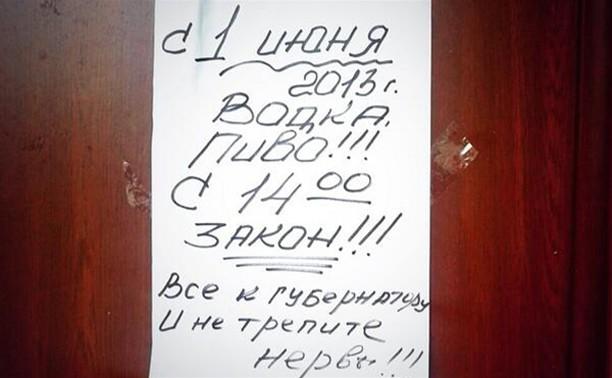 с 1 июня
2013 г.
Водка,
Пиво!!!
С 14 00
Закон!!!
Все к губернатору
И не трепите
нервы!!!